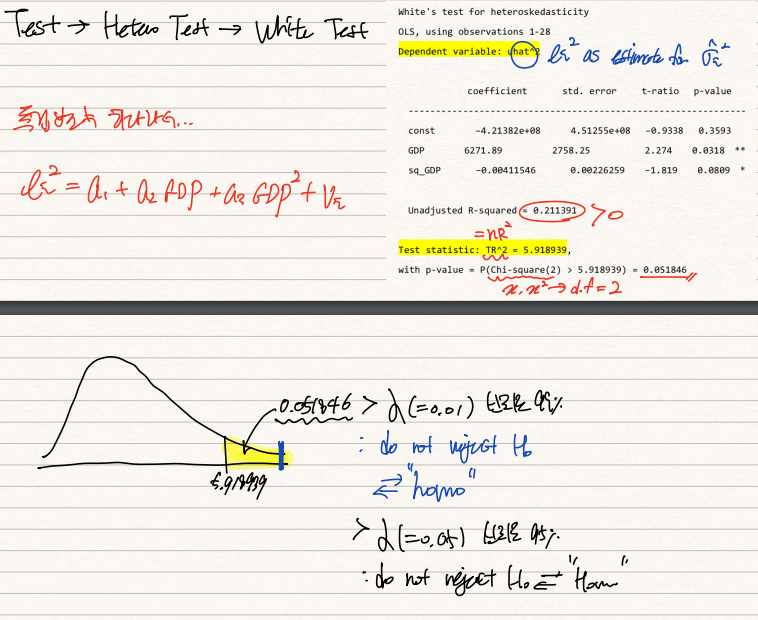 Test → Hetero Test → White Test
독립변수 하나니까...
e_i² = a₁ + a₂ GDP + a₃ GDP² + V_i
White's test for heteroskedasticity
OLS, using observations 1-28
Dependent variable: uhat^2 e_i² as estimate for σ̂_i²
coefficient std. error t-ratio p-value
const -4.21382e+08 4.51255e+08 -0.9338 0.3593
GDP 6271.89 2758.25 2.274 0.0318 **
sq_GDP -0.00411546 0.00226259 -1.819 0.0809 *
Unadjusted R-squared = 0.211391 > 0
= nR²
Test statistic: TR^2 = 5.918939,
with p-value = P(Chi-square(2) > 5.918939) = 0.051846
x, x² → d.f = 2
0.051846 > α(=0.01) 신뢰수준 99%
: do not reject H₀
⇄ "homo"
5.918939
> α(=0.05) 신뢰수준 95%
: do not reject H₀ ⇄ "Homo"